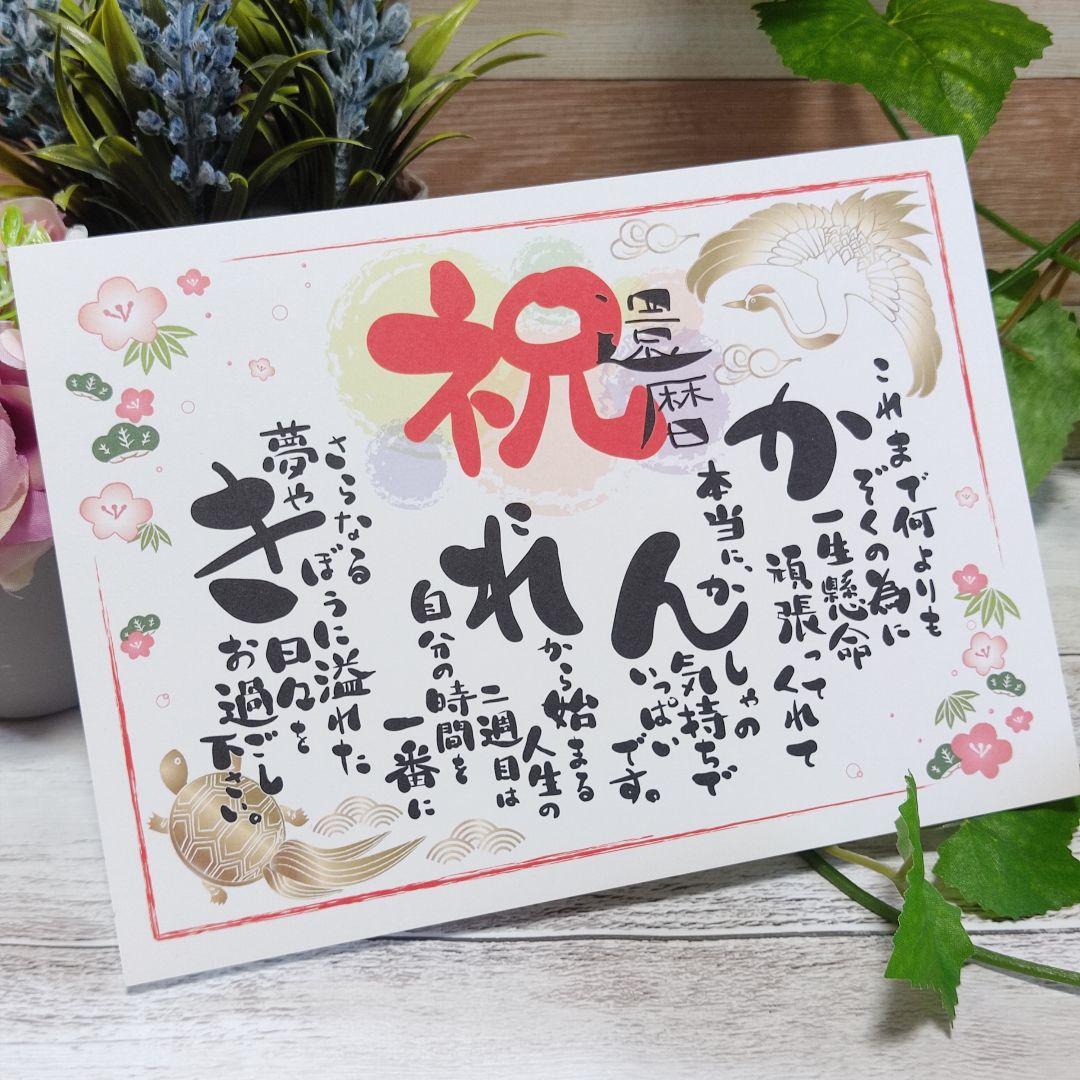 祝
還暦
これまで何よりも
かぞくの為に
一生懸命
頑張ってくれて
本当に、かんしゃの
気持ちで
いっぱい
です。
これから始まる
人生の
二週目は
自分の時間を
一番に
さらなる
夢や
きぼうに溢れた
日々を
お過ごし
下さい。